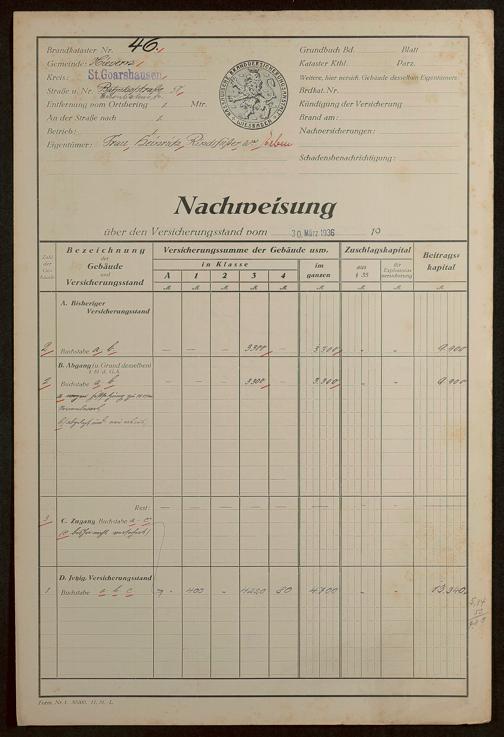 Brandkataster Nr. 46.
Grundbuch Bd. Blatt
Gemeinde:
Kataster Ktbl. Parz.
Kreis: St. Goarshausen
Weitere, hier versich. Gebäude desselben Eigentümers
Straße u. Nr. Bahnhofstraße
Brdkat. Nr.
Entfernung vom Ortsbering 1. Mtr.
Kündigung der Versicherung
An der Straße nach 1.
Brand am:
Betrieb:
Nachversicherungen:
Eigentümer: Frau Heinrich Erben
Schadensbenachrichtigung:
NASSAUISCHE BRANDVERSICHERUNGSANSTALT WIESBADEN
Nachweisung
über den Versicherungsstand vom 30. März 1936 19
Zahl der Gebäude
Bezeichnung der Gebäude und Versicherungsstand
Versicherungssumme der Gebäude usw.
Zuschlagskapital
Beitragskapital
in Klasse
im ganzen
aus § 35
für Explosionsversicherung
A 1 2 3 4
ℳ ℳ ℳ ℳ ℳ ℳ ℳ ℳ ℳ
A. Bisheriger Versicherungsstand
2 Buchstabe a, b — — - 3300 - 3.300 - - 9.900
B. Abgang (u. Grund desselben)
2 Buchstabe a, b 3300 3.300 - - 9.900
Rest: — — — — — — — — —
3 C. Zugang Buchstabe a - c
D. Jetzig. Versicherungsstand
1 Buchstabe a b c - 400 - 4220 80 4.700 - - 13.340
Form. Nr. 1. 30000. 11. 31. L.